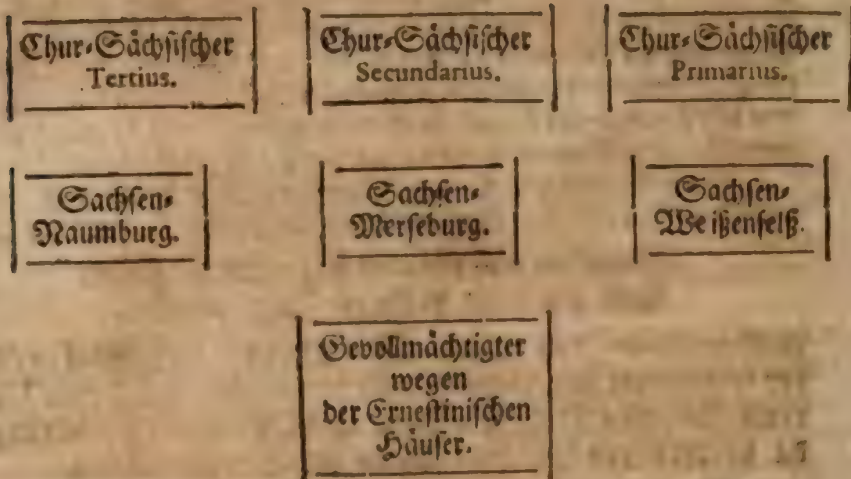 Chur-Sächsischer
Tertius.
Chur-Sächsischer
Secundarius.
Chur-Sächsischer
Primarius.
Sachsen-
Naumburg.
Sachsen-
Merseburg.
Sachsen-
Weißenfelß.
Gevollmächtigter
wegen
der Ernestinischen
Häuser.